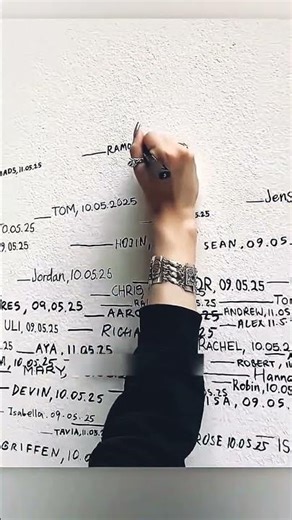 RAMO
ADS, 11.05.25
Jens
TOM, 10.05.2025
O.05.25
HOJIN,
SEAN, 09.05.
9.05.25
Jordan, 10.05.25
CHRIS
OR, 09.05.25
RES, 09.05.25
AARO
ANDREW, 11.05
ULI, 09.05.25
RICHA
ALEX 11.5
AYA, 11.05.25
RACHEL, 10.05.2
M, 10.05.25
MARY,
ROBERT,
Hanna
DEVIN, 10.05.25
Robin, 10.05
ISA, 09.05.
Isabella. 09.05.25
TAVIA, 11.03
GRIFFEN, 10.
ROSE 10.05.25
IS